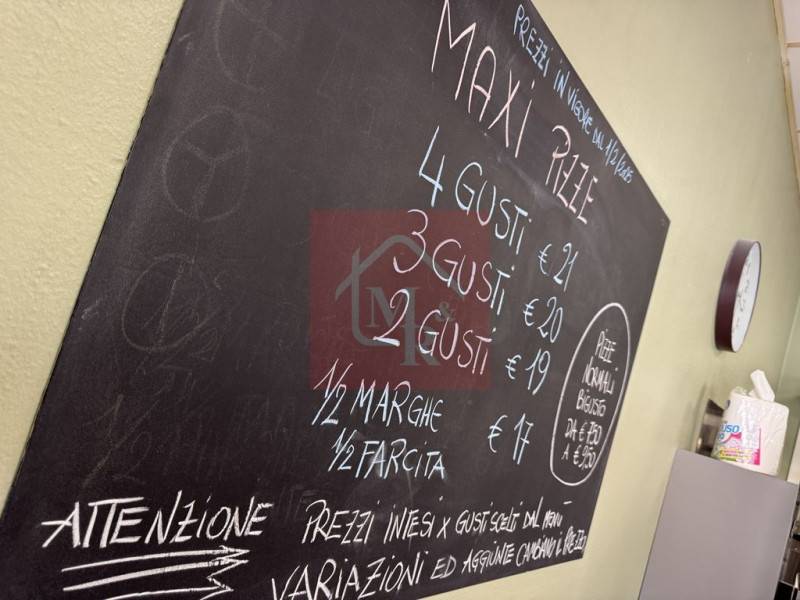 PREZZI IN VIGORE DAL 1/2/2025
MAXI PIZZE
4 GUSTI € 21
3 GUSTI € 20
2 GUSTI € 19
1/2 MARGHE
1/2 FARCITA € 17
PIZZE
NORMALI
BIGUSTO
DA € 7,50
A € 9,50
ATTENZIONE PREZZI INTESI X GUSTI SCELTI DAL MENÙ
VARIAZIONI ED AGGIUNTE CAMBIANO IL PREZZO
M&K